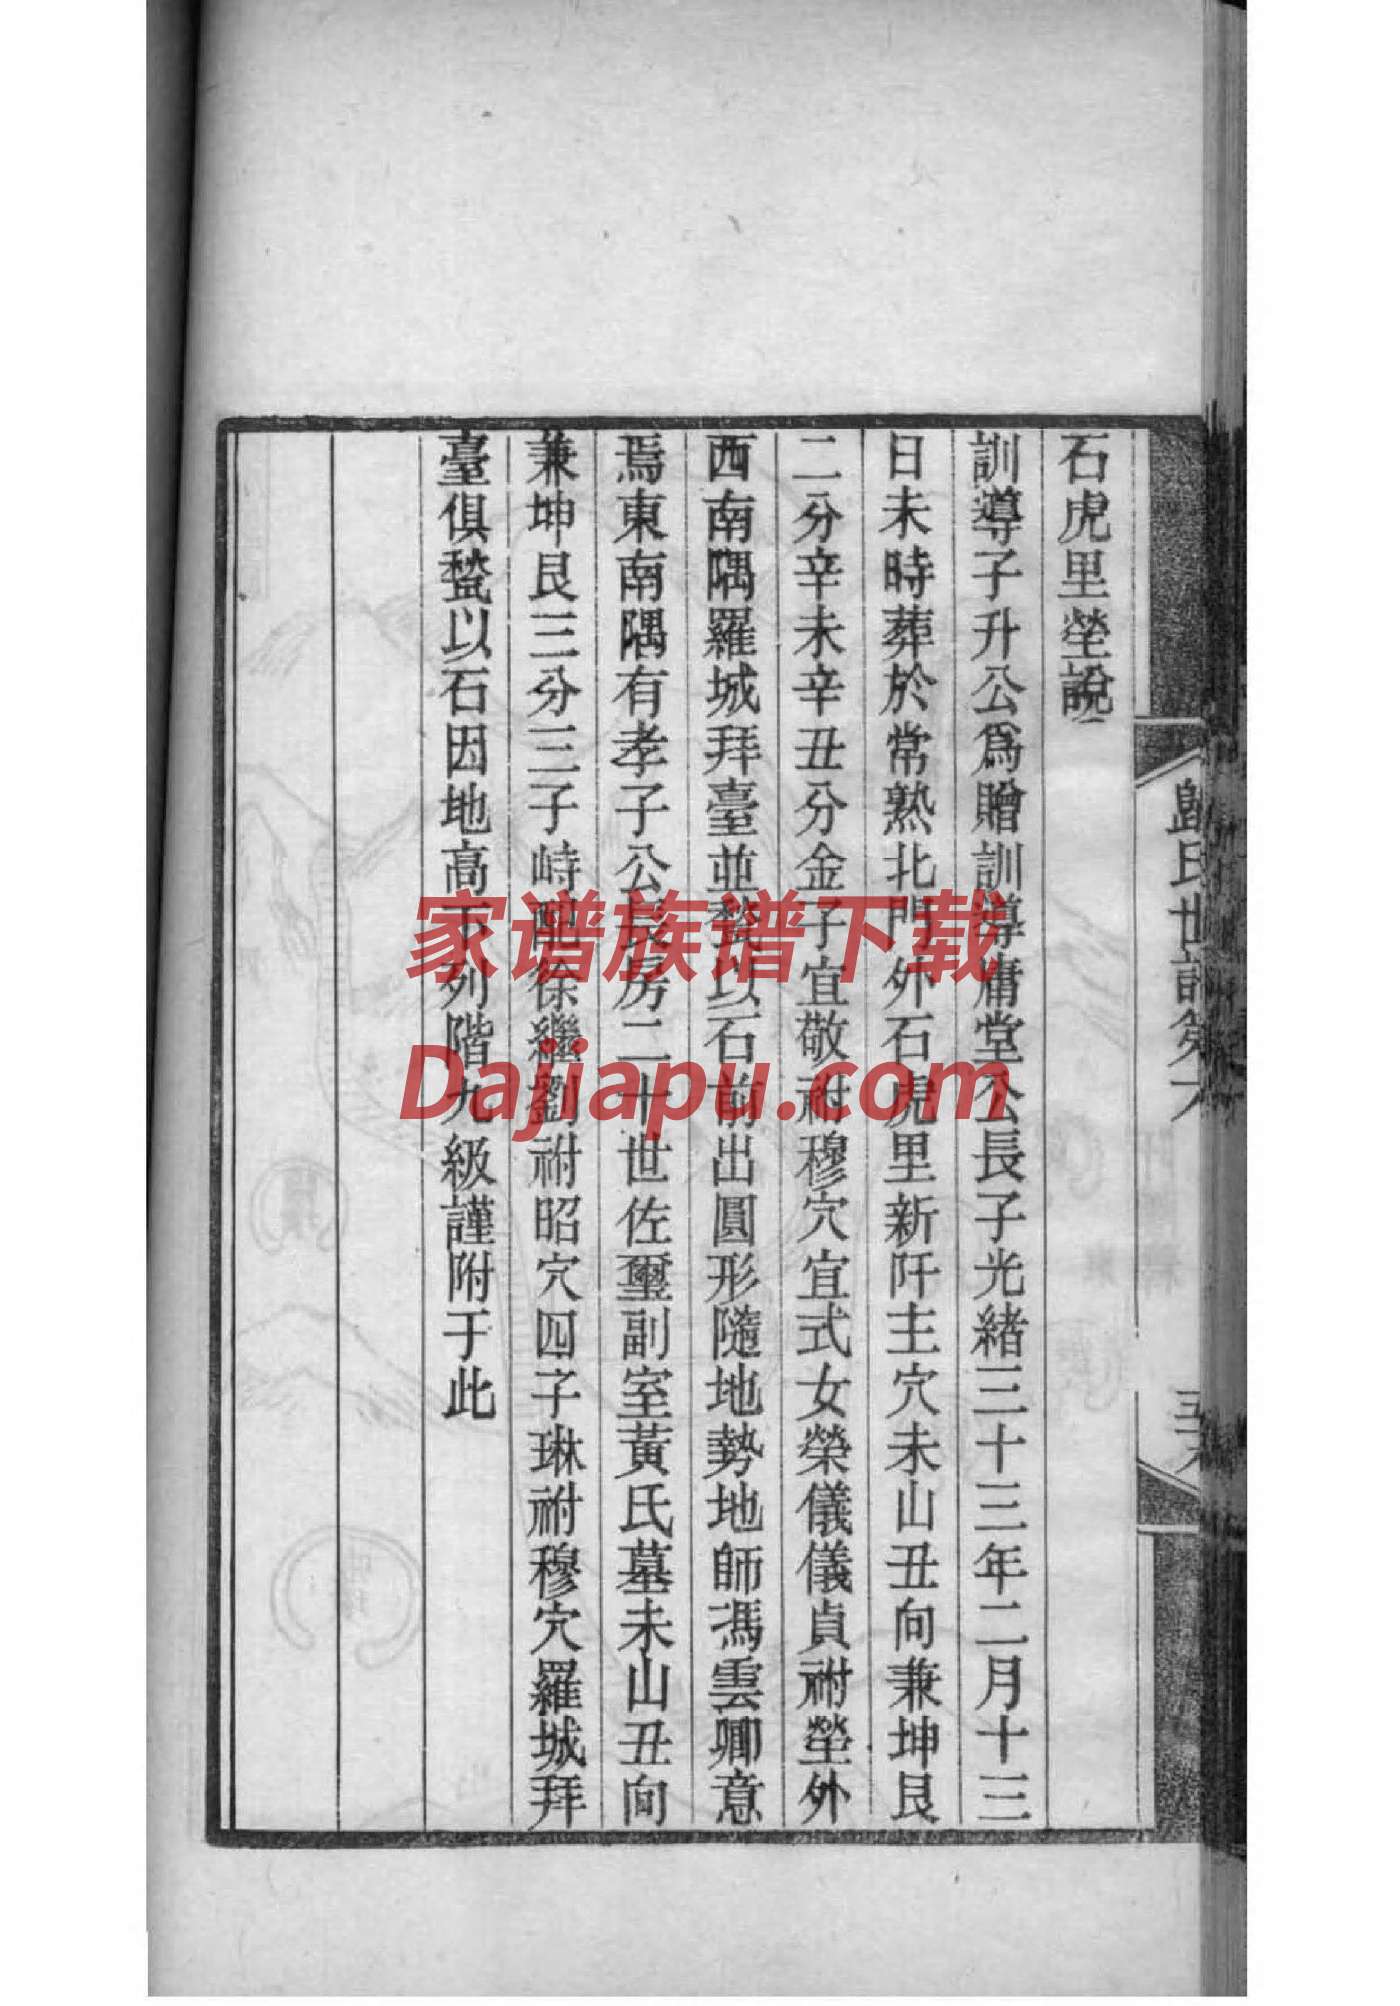 石虎里塋說
訓導子升公爲贈訓導庸堂公長子光緒三十三年二月十三
日未時葬於常熟北門外石虎里新阡主穴未山丑向兼坤艮
二分辛未辛丑分金子宜敬祔穆穴宜式女榮儀儀貞祔塋外
西南隅羅城拜臺並甃以石前出圓形隨地勢地師馮雲卿意
焉東南隅有孝子公長房二十世佐璽副室黃氏墓未山丑向
兼坤艮三分三子峙配徐繼劉祔昭穴四子琳祔穆穴羅城拜
臺俱甃以石因地高下列階九級謹附于此
歸氏世譜第六
家谱族谱下载
Dajiapu.com